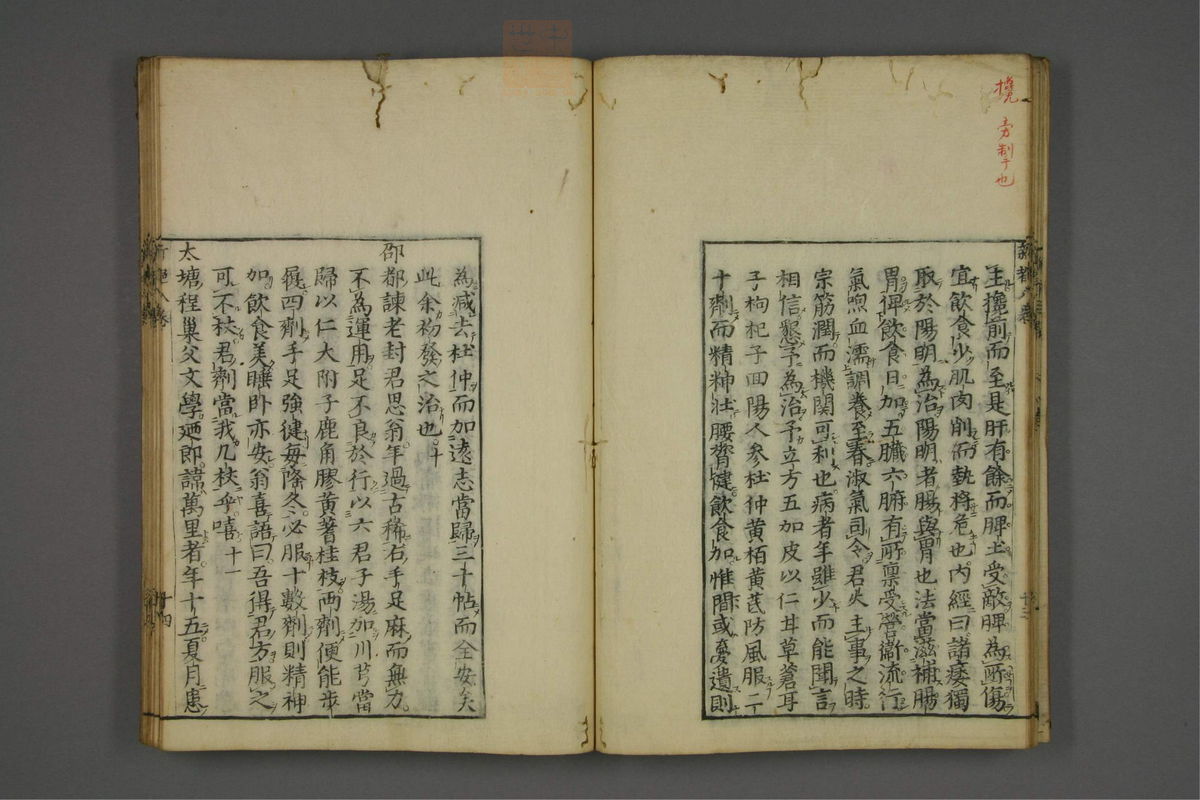 攙 旁制于也
主攙前而至是肝有餘而脾土受敵脾為所傷
宜飲食少肌肉削而執將危也內經曰諸痿獨
取於陽明為治陽明者腸與胃也法當滋補腸
胃俾飲食日加五臟六腑有所禀受營衞流行
氣喣血濡調養至春淑氣司令君火主事之時
宗筋潤而機關可利也病者年雖少而能聞言
相信懇予為治予立方五加皮以仁甘草蒼耳
子枸杞子回陽人參杜仲黃栢黃芪防風服二
十劑而精神壯腰膂健飲食加惟間或憂遺則
為減去杜仲而加遠志當歸三十帖而全安矣
此余初發之治也十
邵都諫老封君思翁年過古稀右手足麻而無力
不為運用足不良於行以六君子湯加川芎當
歸以仁大附子鹿角膠黃蓍桂枝兩劑便能步
履四劑手足強健每隆冬必服十數劑則精神
加飲食美睡卧亦安翁喜語曰吾得君方服之
可不杖君劑當我几杖乎嘻十一
太塘程巢父文學廼郎諱萬里者年十五夏月患